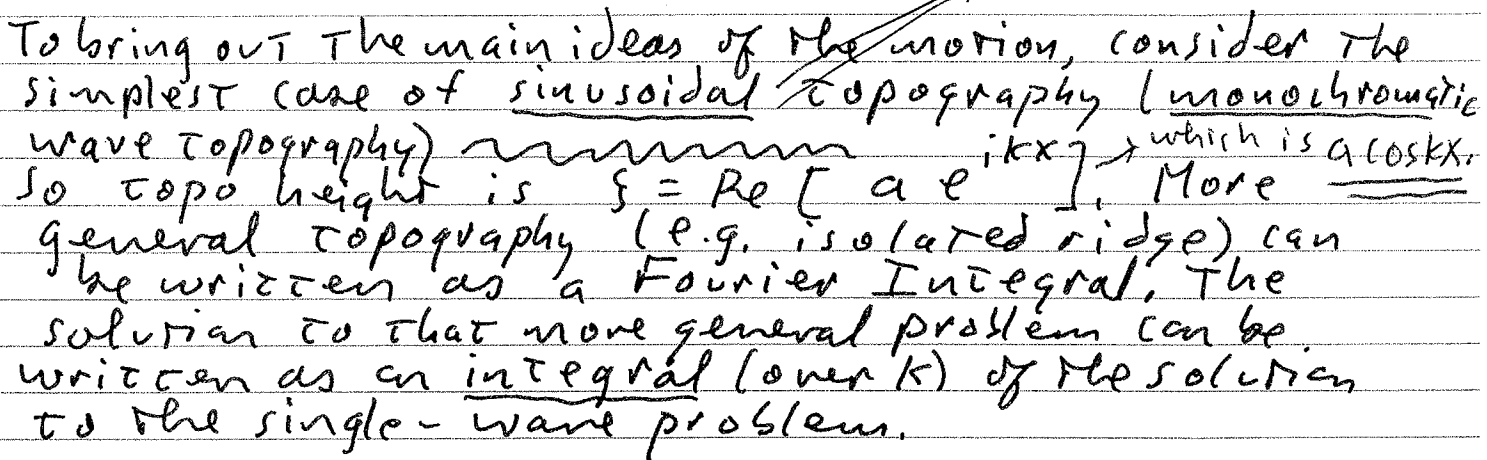 To bring out the main ideas of the motion, consider the
simplest case of sinusoidal topography (monochromatic
wave topography)
so topo height is ξ = Re[ a e^{ikx} ]. → which is a cos kx. More
general topography (e.g. isolated ridge) can
be written as a Fourier Integral. The
solution to that more general problem can be
written as an integral (over k) of the solution
to the single-wave problem.